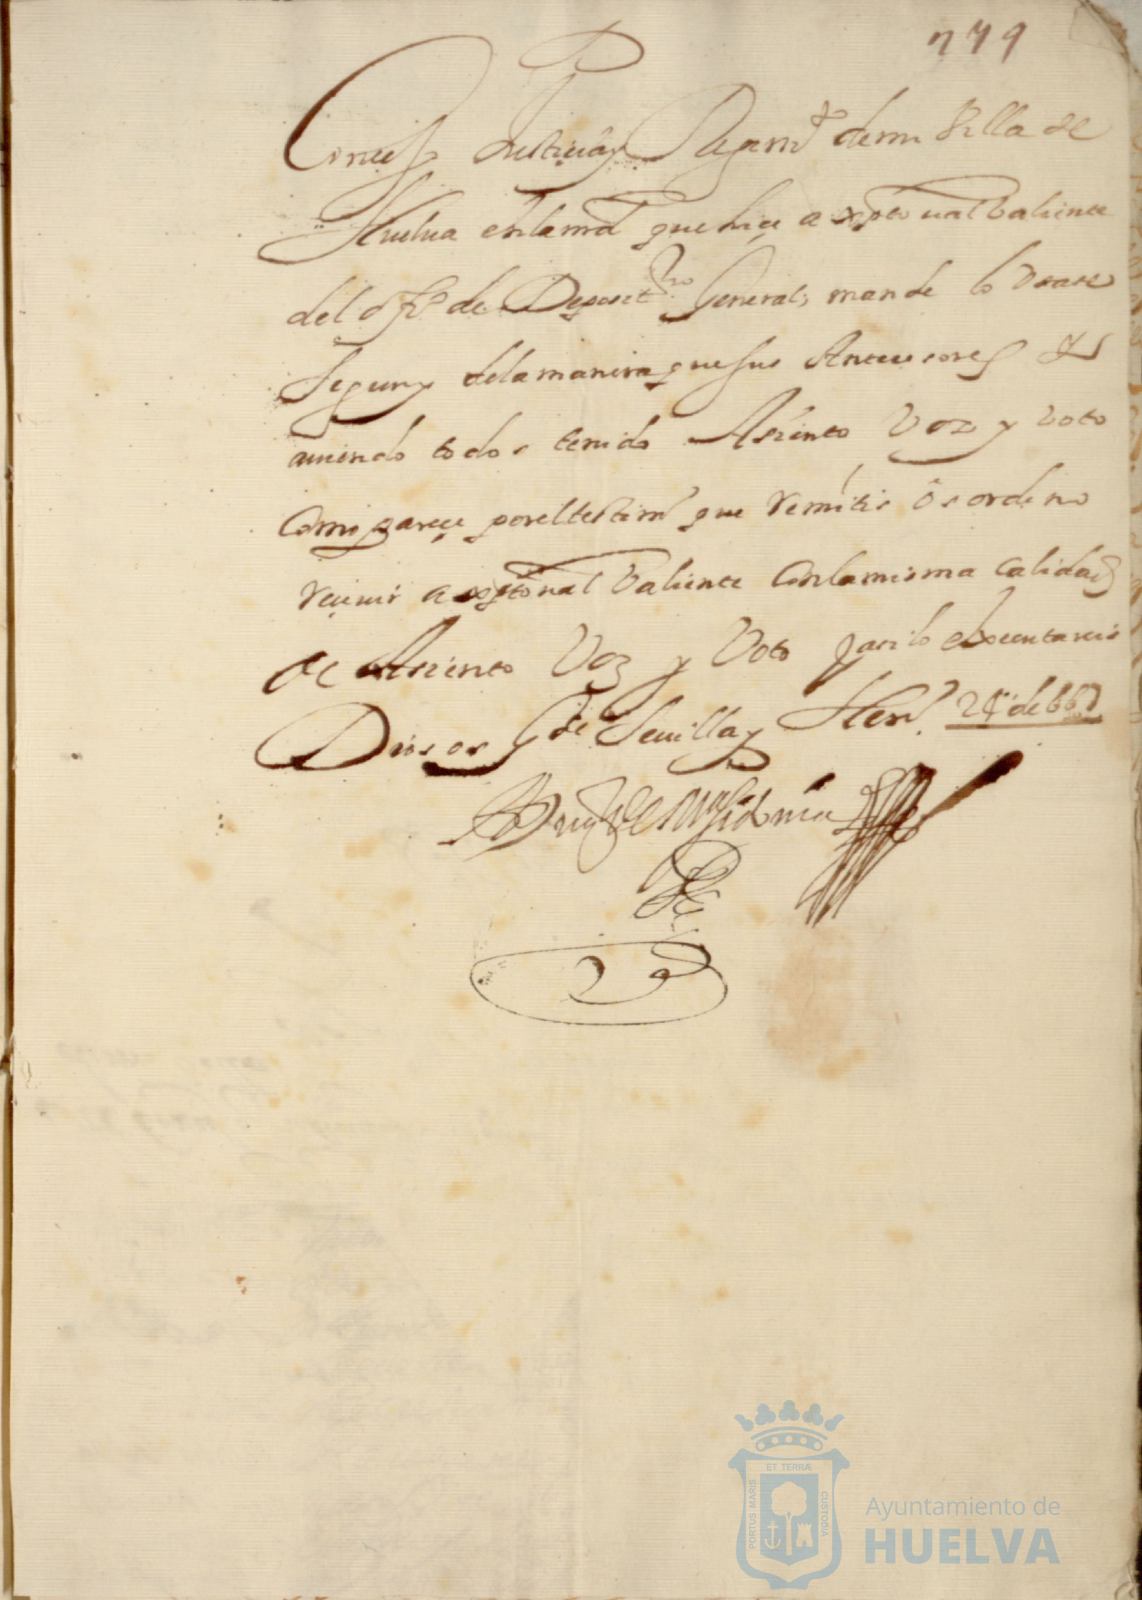 779
Concejo Justicia y Regim.to de mi Villa de
Huelua en la md que hice a xptoual Valiente
del offo de Deposit.rio General, mande lo Vsase
Segun y de la manera que Sus Antecesores y
auiendo todos tenido Asiento Voz y voto
Como parece por el testim.o que remitis ôs ordeno
reciuir a xptoual Valiente Con la misma Calidad
de Asiento Voz y Voto y asi lo executareis
Dios os g.de Seuilla y Hen.o 24 de 66
El Duq de Mcd Sidonia
ET TERRÆ
PORTUS MARIS
CUSTODIA
Ayuntamiento de
HUELVA